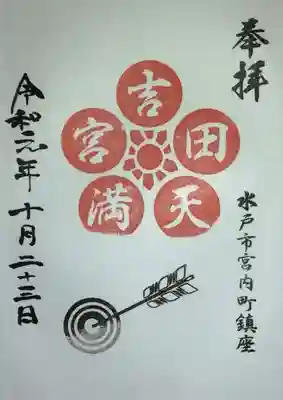 奉拝
水戸市宮内町鎮座
吉田天満宮
令和元年十月二十三日